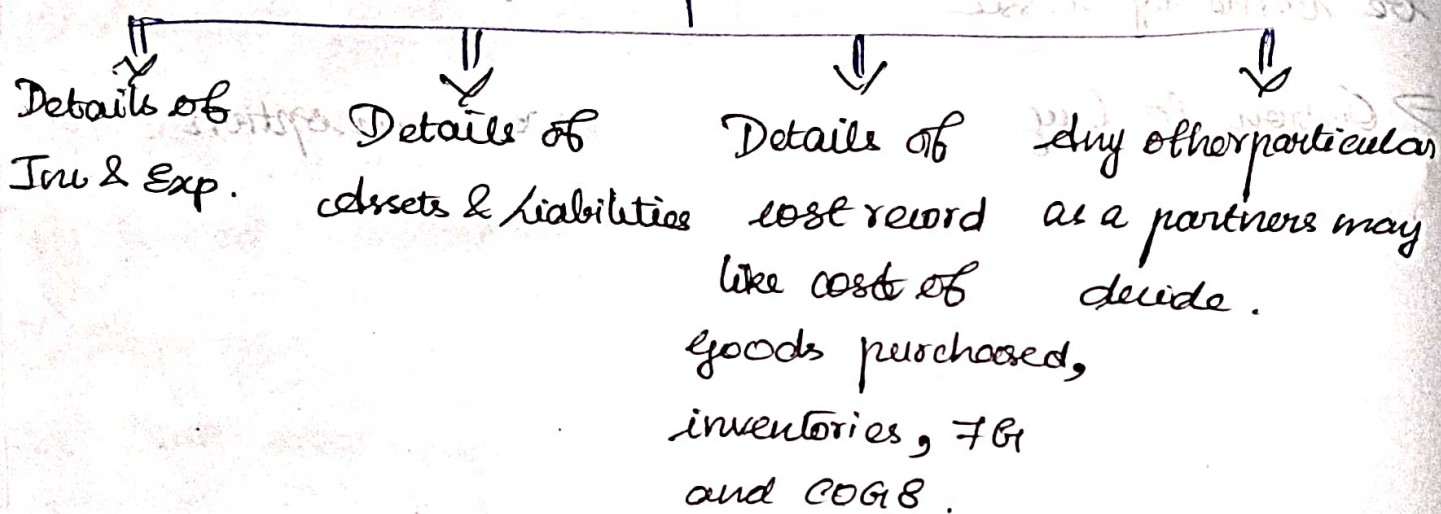 Details of
Inc & Exp.
Details of
Assets & Liabilities
Details of
cost record
like cost of
goods purchased,
inventories, FG
and COGS.
Any other particular
as a partners may
decide.